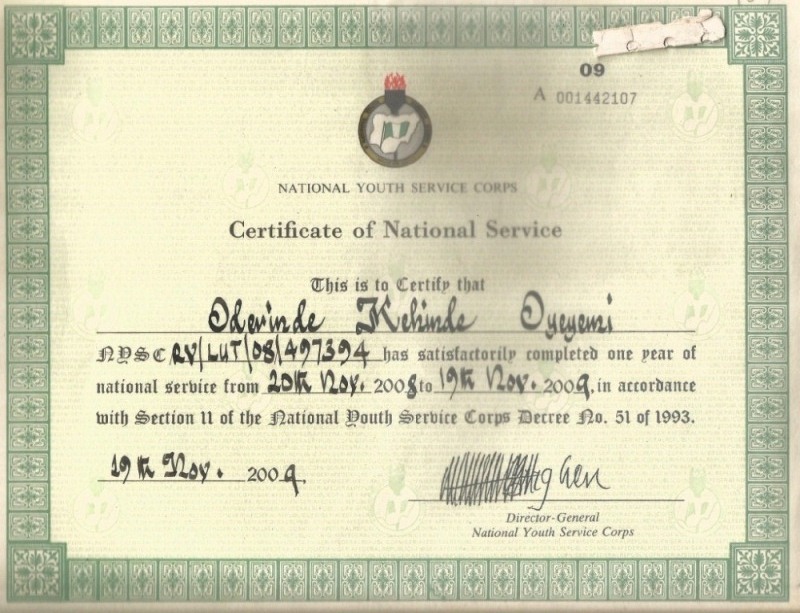 09
A 001442107
NATIONAL YOUTH SERVICE CORPS
Certificate of National Service
This is to Certify that
Oderinde Kehinde Oyeyemi
NYSC RV/LUT/08/497394 has satisfactorily completed one year of
national service from 20th Nov. 2008 to 19th Nov. 2009, in accordance
with Section 11 of the National Youth Service Corps Decree No. 51 of 1993.
19th Nov. 2009.
Director-General
National Youth Service Corps